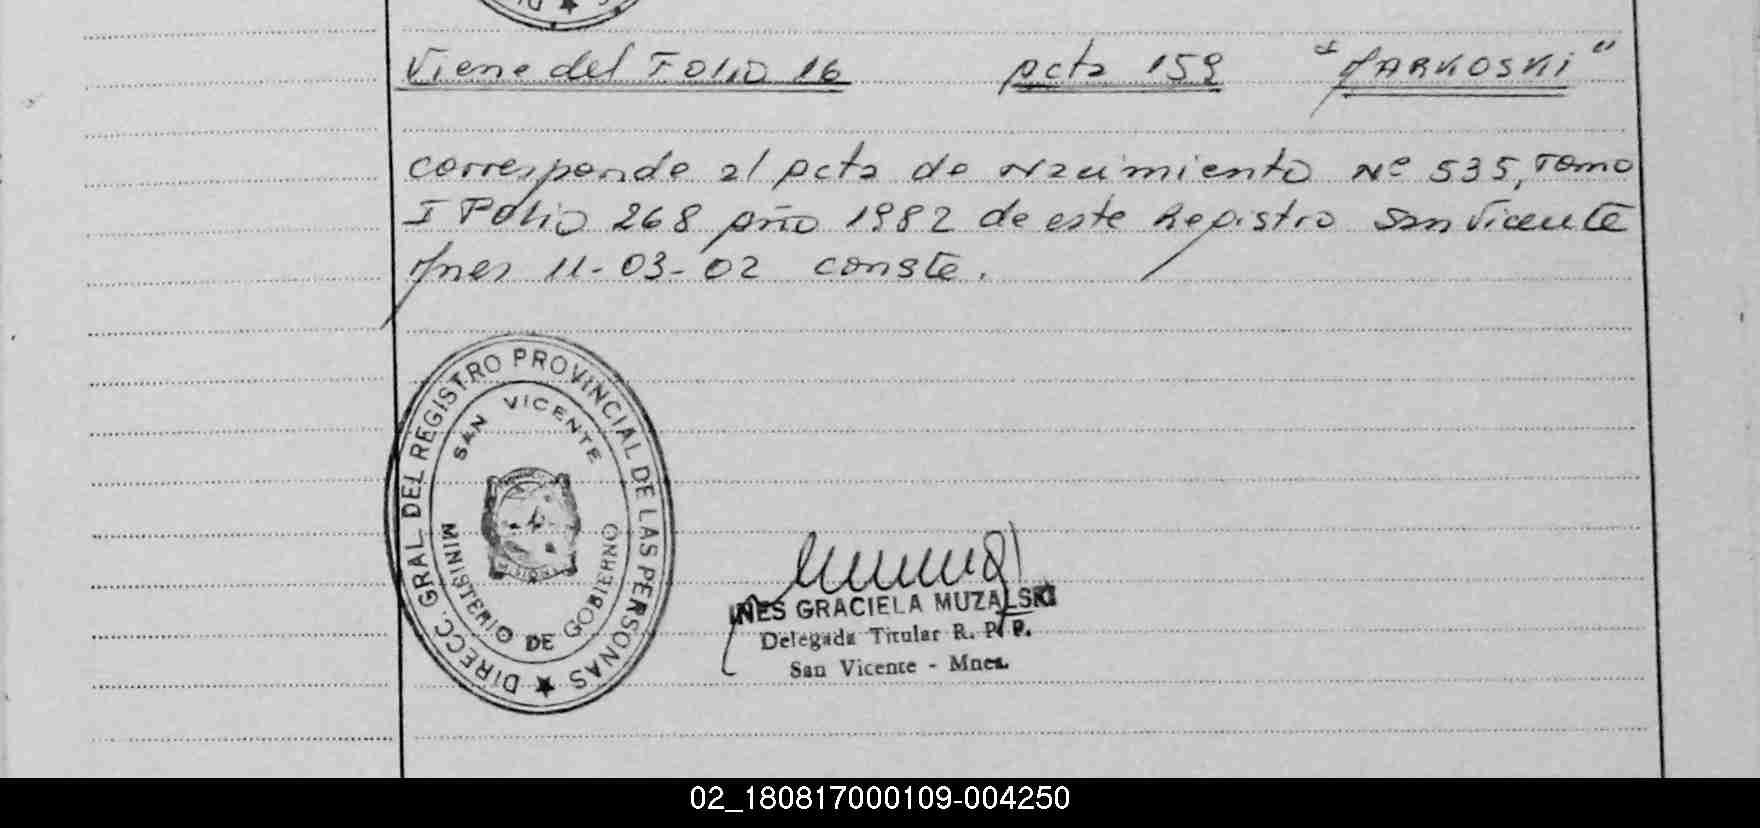 Viene del Folio 16 Acta 159 "MARKOSKI"
corresponde al Acta de Nacimiento Nº 535, Tomo
I Folio 268 Año 1982 de este Registro San Vicente
Mnes 11-03-02 conste.
DIRECC. GRAL DEL REGISTRO PROVINCIAL DE LAS PERSONAS
SAN VICENTE
MINISTERIO DE GOBIERNO
INES GRACIELA MUZALSKI
Delegada Titular R. P. P.
San Vicente - Mnes.
02_180817000109-004250